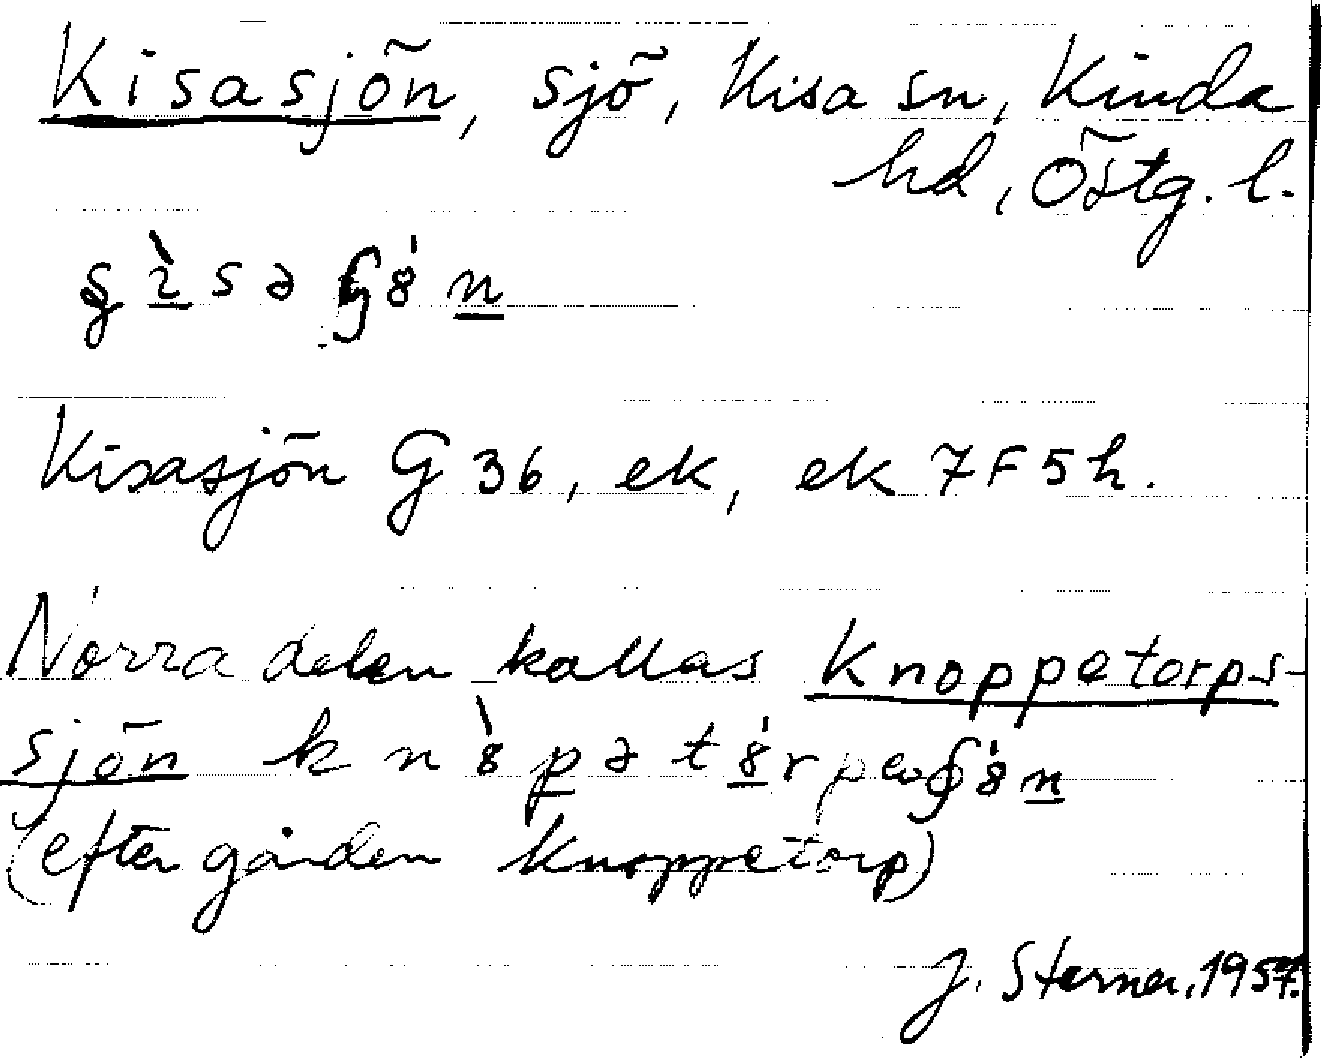 Kisasjön, sjö, Kisa sn, Kinda
hd, Östg. l.
Kisasjön G 36, ek, ek 7F5h.
Norra delen kallas Knoppetorps-
sjön
(efter gården Knoppetorp)
J. Sterner, 1957.